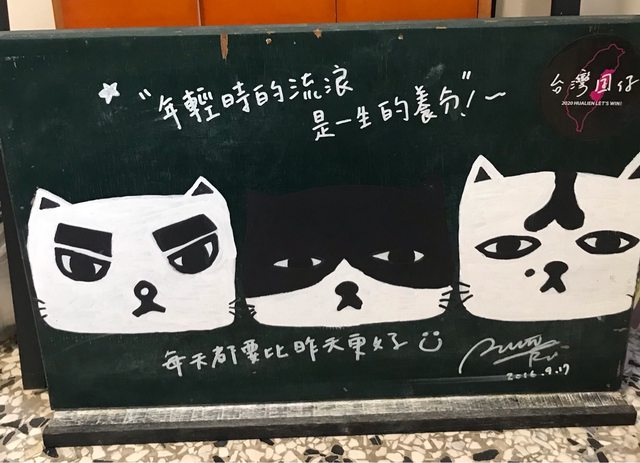 "年輕時的流浪
是一生的養分!"~
台灣囝仔
2020 HUALIEN LET'S WIN!
每天都要比昨天更好
2016.9.17